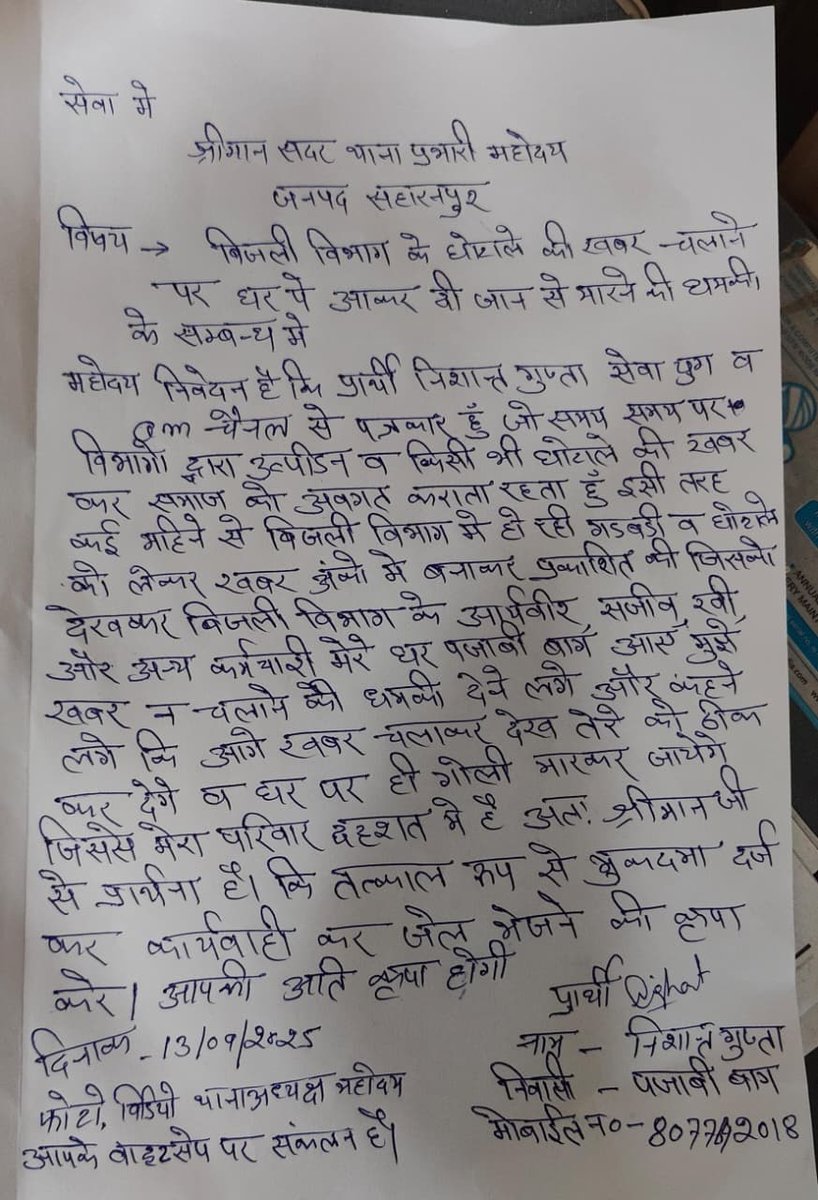 सेवा मे
श्रीमान सदर थाना प्रभारी महोदय
जनपद सहारनपुर
विषय → बिजली विभाग के घोटाले की खबर चलाने
पर घर पे आकर दी जान से मारने की धमकी।
के सम्बन्ध मे
महोदय निवेदन है कि प्रार्थी निशान्त गुप्ता सेवा युग व
चैनल से पत्रकार हुँ जो समय समय पर
विभागो द्वारा उत्पीडन व किसी भी घोटाले की खबर
कर समाज को अवगत कराता रहता हुँ इसी तरह
कई महिने से बिजली विभाग मे हो रही गडबडी व घोटाले
को लेकर खबर अंको मे बनाकर प्रकाशित की जिसको
देखकर बिजली विभाग के आर्यवीर, सजीव, रवी
और अन्य कर्मचारी मेरे घर पजाबी बाग आए मुझे
खबर न चलाने की धमकी देने लगे और कहने
लगे कि आगे खबर चलाकर देख तेरे को ठीक
कर देगे व घर पर ही गोली मारकर जायेगे
जिससे मेरा परिवार दहशत मे है अतः श्रीमान जी
से प्रार्थना है। कि तत्काल रूप से मुकदमा दर्ज
कर कार्यवाही कर जेल भेजने की कृपा
करे। आपकी अति कृपा होगी
प्रार्थी
दिनाक - 13/09/2025
नाम - निशान्त गुप्ता
निवासी - पजाबी बाग
फोटो, विडियो थानाअध्यक्ष महोदय
मोबाईल न०-
आपके वाहटसेप पर संकलन है।